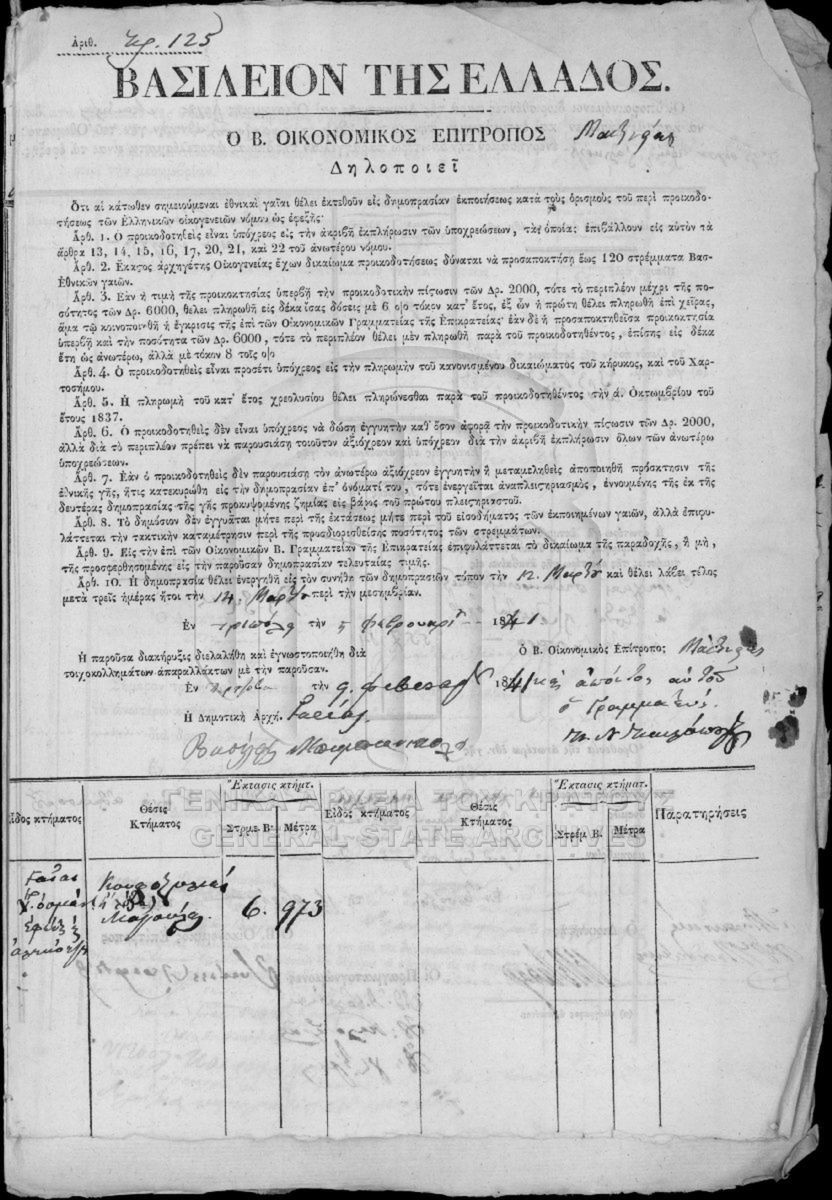 Ἀριθ. 125
ΒΑΣΙΛΕΙΟΝ ΤΗΣ ΕΛΛΑΔΟΣ.
Ὁ Β. ΟΙΚΟΝΟΜΙΚΟΣ ΕΠΙΤΡΟΠΟΣ
Δηλοποιεῖ
Ὅτι αἱ κάτωθεν σημειούμεναι ἐθνικαὶ γαῖαι θέλει ἐκτεθοῦν εἰς δημοπρασίαν ἐκποιήσεως κατὰ τοὺς ὁρισμοὺς τοῦ περὶ προικοδο-
τήσεως τῶν Ἑλληνικῶν οἰκογενειῶν νόμου ὡς ἐφεξῆς·
Ἀρθ. 1. Ὁ προικοδοτηθεὶς εἶναι ὑπόχρεος εἰς τὴν ἀκριβῆ ἐκπλήρωσιν τῶν ὑποχρεώσεων, τὰς ὁποίας ἐπιβάλλουν εἰς αὐτὸν τὰ
ἄρθρα 13, 14, 15, 16, 17, 20, 21, καὶ 22 τοῦ ἀνωτέρω νόμου.
Ἀρθ. 2. Ἕκαστος ἀρχηγέτης Οἰκογενείας ἔχων δικαίωμα προικοδοτήσεως δύναται νὰ προσαποκτήσῃ ἕως 120 στρέμματα Βασ-
Ἐθνικῶν γαιῶν.
Ἀρθ. 3. Ἐὰν ἡ τιμὴ τῆς προικοκτησίας ὑπερβῇ τὴν προικοδοτικὴν πίστωσιν τῶν Δρ. 2000, τότε τὸ περιπλέον μέχρι τῆς πο-
σότητος τῶν Δρ. 6000, θέλει πληρωθῆ εἰς δέκα ἴσας δόσεις μὲ 6 ο)ο τόκον κατ᾽ ἔτος, ἐξ ὧν ἡ πρώτη θέλει πληρωθῆ ἐπὶ χεῖρας,
ἅμα τῷ κοινοποιηθῇ ἡ ἔγκρισις τῆς ἐπὶ τῶν Οἰκονομικῶν Γραμματείας τῆς Ἐπικρατείας· ἐὰν δὲ ἡ προσαποκτηθεῖσα προικοκτησία
ὑπερβῇ καὶ τὴν ποσότητα τῶν Δρ. 6000, τότε τὸ περιπλέον θέλει μὲν πληρωθῆ παρὰ τοῦ προικοδοτηθέντος, ἐπίσης εἰς δέκα
ἔτη ὡς ἀνωτέρω, ἀλλὰ μὲ τόκον 8 τοῖς ο)ο
Ἀρθ. 4. Ὁ προικοδοτηθεὶς εἶναι προσέτι ὑπόχρεος εἰς τὴν πληρωμὴν τοῦ κανονισμένου δικαιώματος τοῦ κήρυκος, καὶ τοῦ Χαρ-
τοσήμου.
Ἀρθ. 5. Ἡ πληρωμὴ τοῦ κατ᾽ ἔτος χρεολυσίου θέλει πληρώνεσθαι παρὰ τοῦ προικοδοτηθέντος τὴν ά. Ὀκτωμβρίου τοῦ
ἔτους 1837.
Ἀρθ. 6. Ὁ προικοδοτηθεὶς δὲν εἶναι ὑπόχρεος νὰ δώσῃ ἐγγυητὴν καθ᾽ ὅσον ἀφορᾷ τὴν προικοδοτικὴν πίστωσιν τῶν Δρ. 2000,
ἀλλὰ διὰ τὸ περιπλέον πρέπει νὰ παρουσιάσῃ τοιοῦτον ἀξιόχρεον καὶ ὑπόχρεον διὰ τὴν ἀκριβῆ ἐκπλήρωσιν ὅλων τῶν ἀνωτέρω
ὑποχρεώσεων.
Ἀρθ. 7. Ἐὰν ὁ προικοδοτηθεὶς δὲν παρουσιάσῃ τὸν ἀνωτέρω ἀξιόχρεον ἐγγυητὴν ἢ μεταμεληθεὶς ἀποποιηθῇ πρόσκτησιν τῆς
ἐθνικῆς γῆς, ἥτις κατεκυρώθη εἰς τὴν δημοπρασίαν ἐπ᾽ ὀνόματί του, τότε ἐνεργεῖται ἀναπλειστηριασμὸς, ἐννουμένης τῆς ἐκ τῆς
δευτέρας δημοπρασίας τῆς γῆς προκυψομένης ζημίας εἰς βάρος τοῦ πρώτου πλειστηριαστοῦ.
Ἀρθ. 8. Τὸ δημόσιον δὲν ἐγγυᾶται μήτε περὶ τῆς ἐκτάσεως μήτε περὶ τοῦ εἰσοδήματος τῶν ἐκποιημένων γαιῶν, ἀλλὰ ἐπιφυ-
λάττεται τὴν τακτικὴν καταμέτρησιν περὶ τῆς προσδιορισθείσης ποσότητος τῶν στρεμμάτων.
Ἀρθ. 9. Εἰς τὴν ἐπὶ τῶν Οἰκονομικῶν Β. Γραμματείαν τῆς Ἐπικρατείας ἐπιφυλάττεται τὸ δικαίωμα τῆς παραδοχῆς, ἢ μὴ,
τῆς προσφερθησομένης εἰς τὴν παροῦσαν δημοπρασίαν τελευταίας τιμῆς.
Ἀρθ. 10. Ἡ δημοπρασία θέλει ἐνεργηθῆ εἰς τὸν συνήθη τῶν δημοπρασιῶν τόπον τὴν 12. Μαρτίου καὶ θέλει λάβει τέλος
μετὰ τρεῖς ἡμέρας ἤτοι τὴν 14, Μαρτίου περὶ τὴν μεσημβρίαν.
Ἐν Τριπόλει τὴν 5 Φεβρουαρίου 1841
Ἡ παροῦσα διακήρυξις διελαλήθη καὶ ἐγνωστοποιήθη διὰ
τοιχοκολλημάτων ἀπαραλλάκτων μὲ τὴν παροῦσαν.
Ὁ Β. Οἰκονομικὸς Ἐπίτροπος
Ἐν τὴν 9. 1841
ὁ Γραμματεύς.
Ἡ Δημοτικὴ Ἀρχή.
Εἶδος κτήματος
Θέσις Κτήματος
Ἔκτασις κτήμτ.
Στρμε. Β.
Μέτρα
Εἶδος κτήματος
Θέσις Κτήματος
Ἔκτασις κτήματ.
Στρέμ Β.
Μέτρα
Παρατηρήσεις
ΓΕΝΙΚΑ ΑΡΧΕΙΑ ΤΟΥ ΚΡΑΤΟΥΣ
GENERAL STATE ARCHIVES
Γαῖαι
6. 973